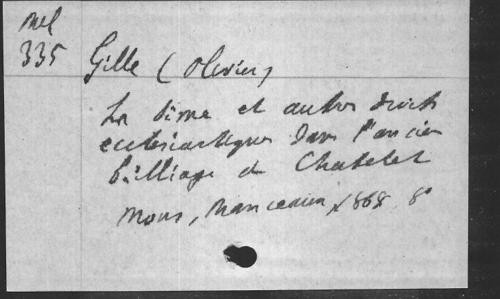 Mel
335
Gille (Olivier)
La dîme et autres droits
ecclésiastiques dans l'ancien
bailliage de Chatelet
Mons, Manceaux, 1868 8°